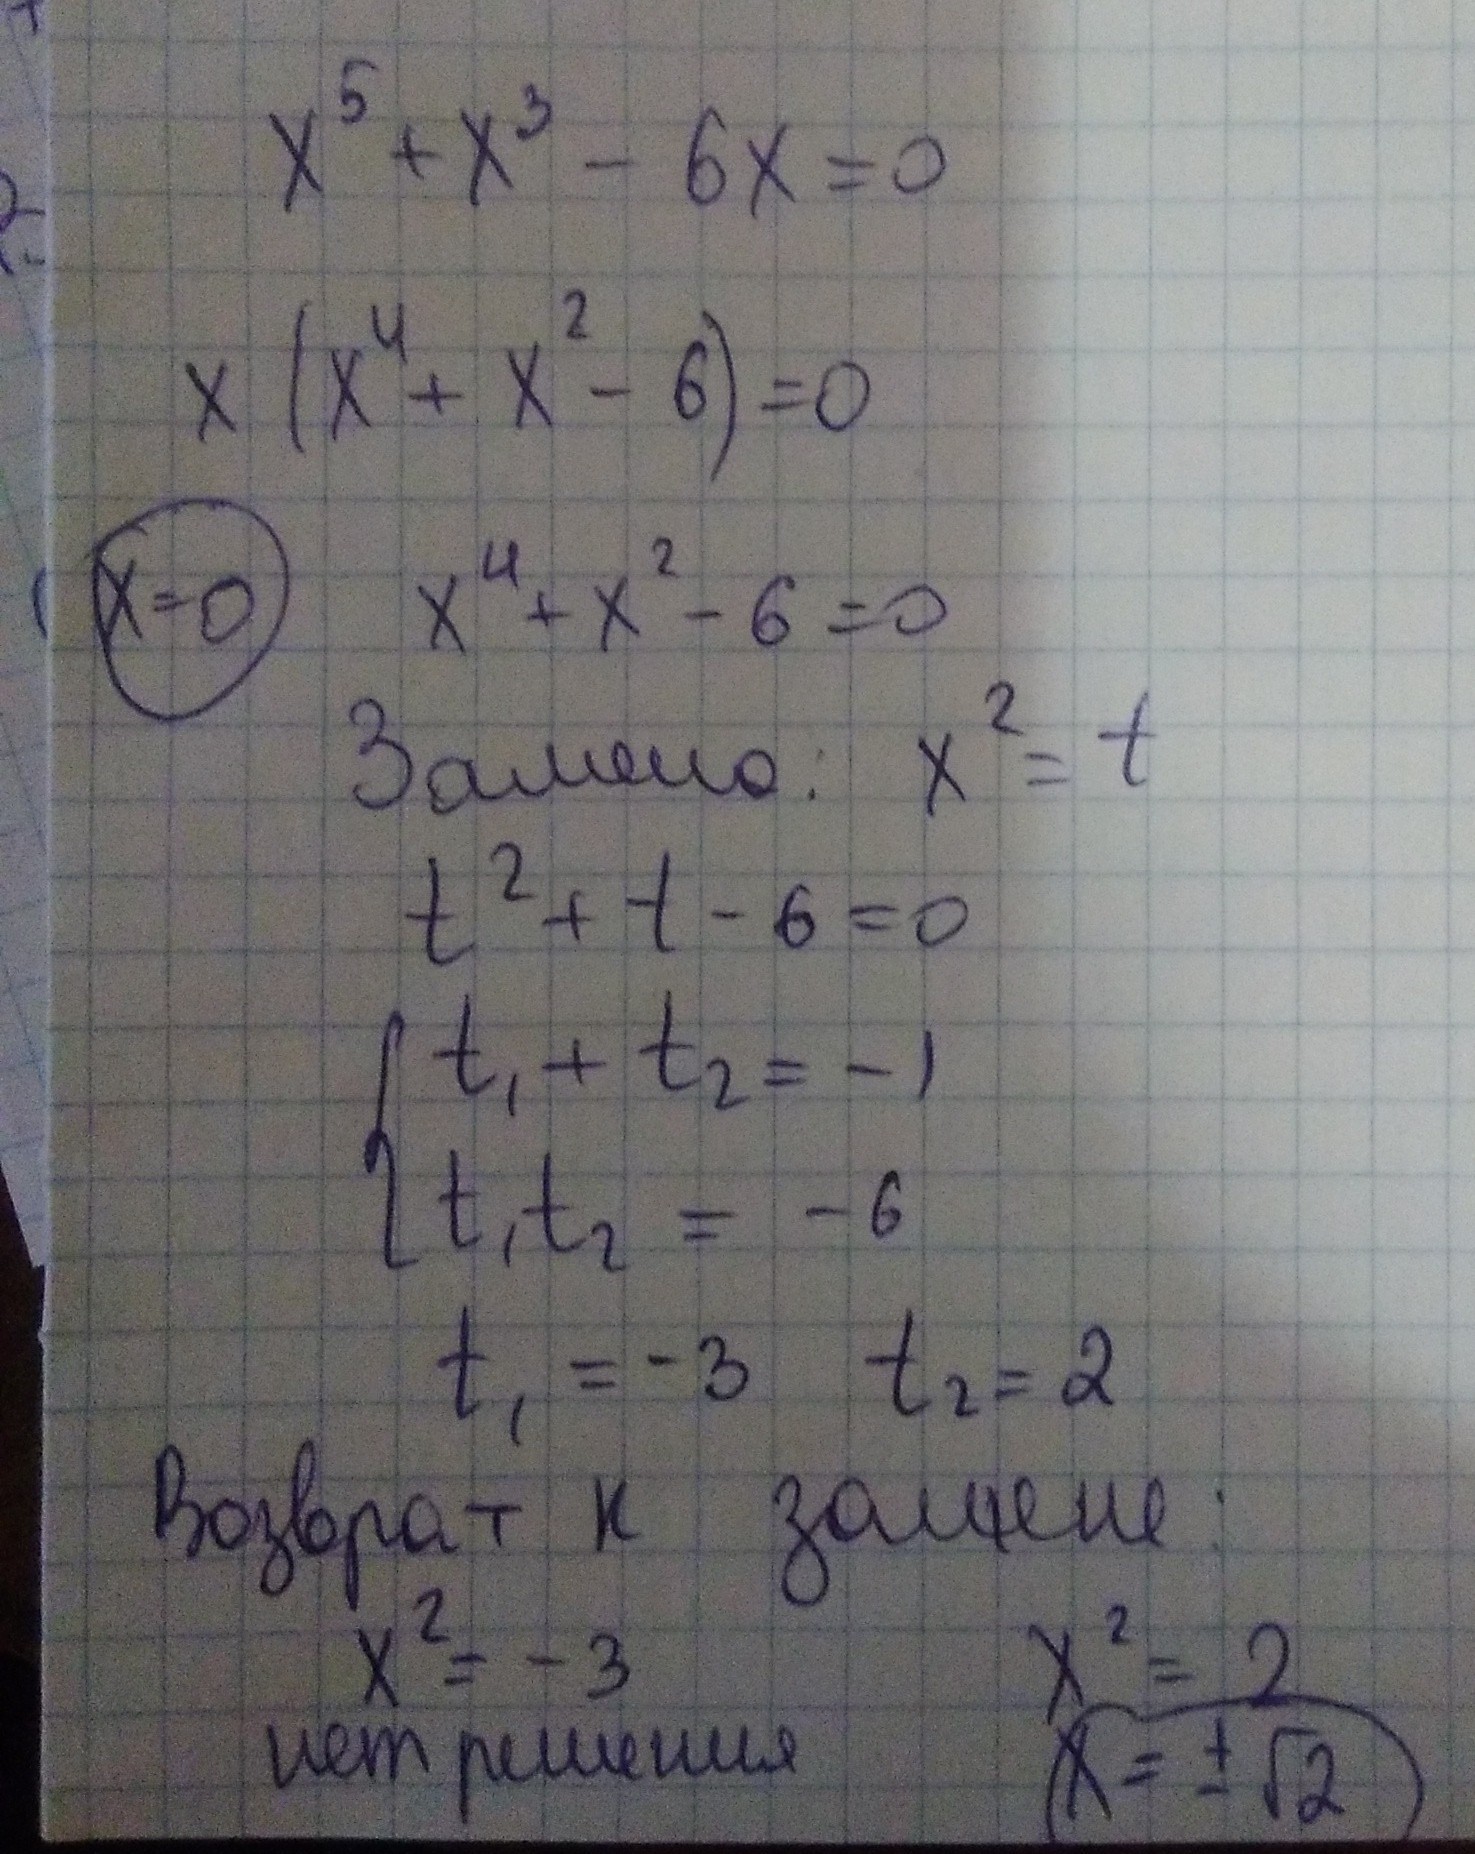 x⁵ + x³ - 6x = 0
x (x⁴ + x² - 6) = 0
x = 0 x⁴ + x² - 6 = 0
Замена: x² = t
t² + t - 6 = 0
{ t₁ + t₂ = -1
t₁t₂ = -6
t₁ = -3 t₂ = 2
Возврат к замене:
x² = -3 x² = 2
нет решения x = ±√2